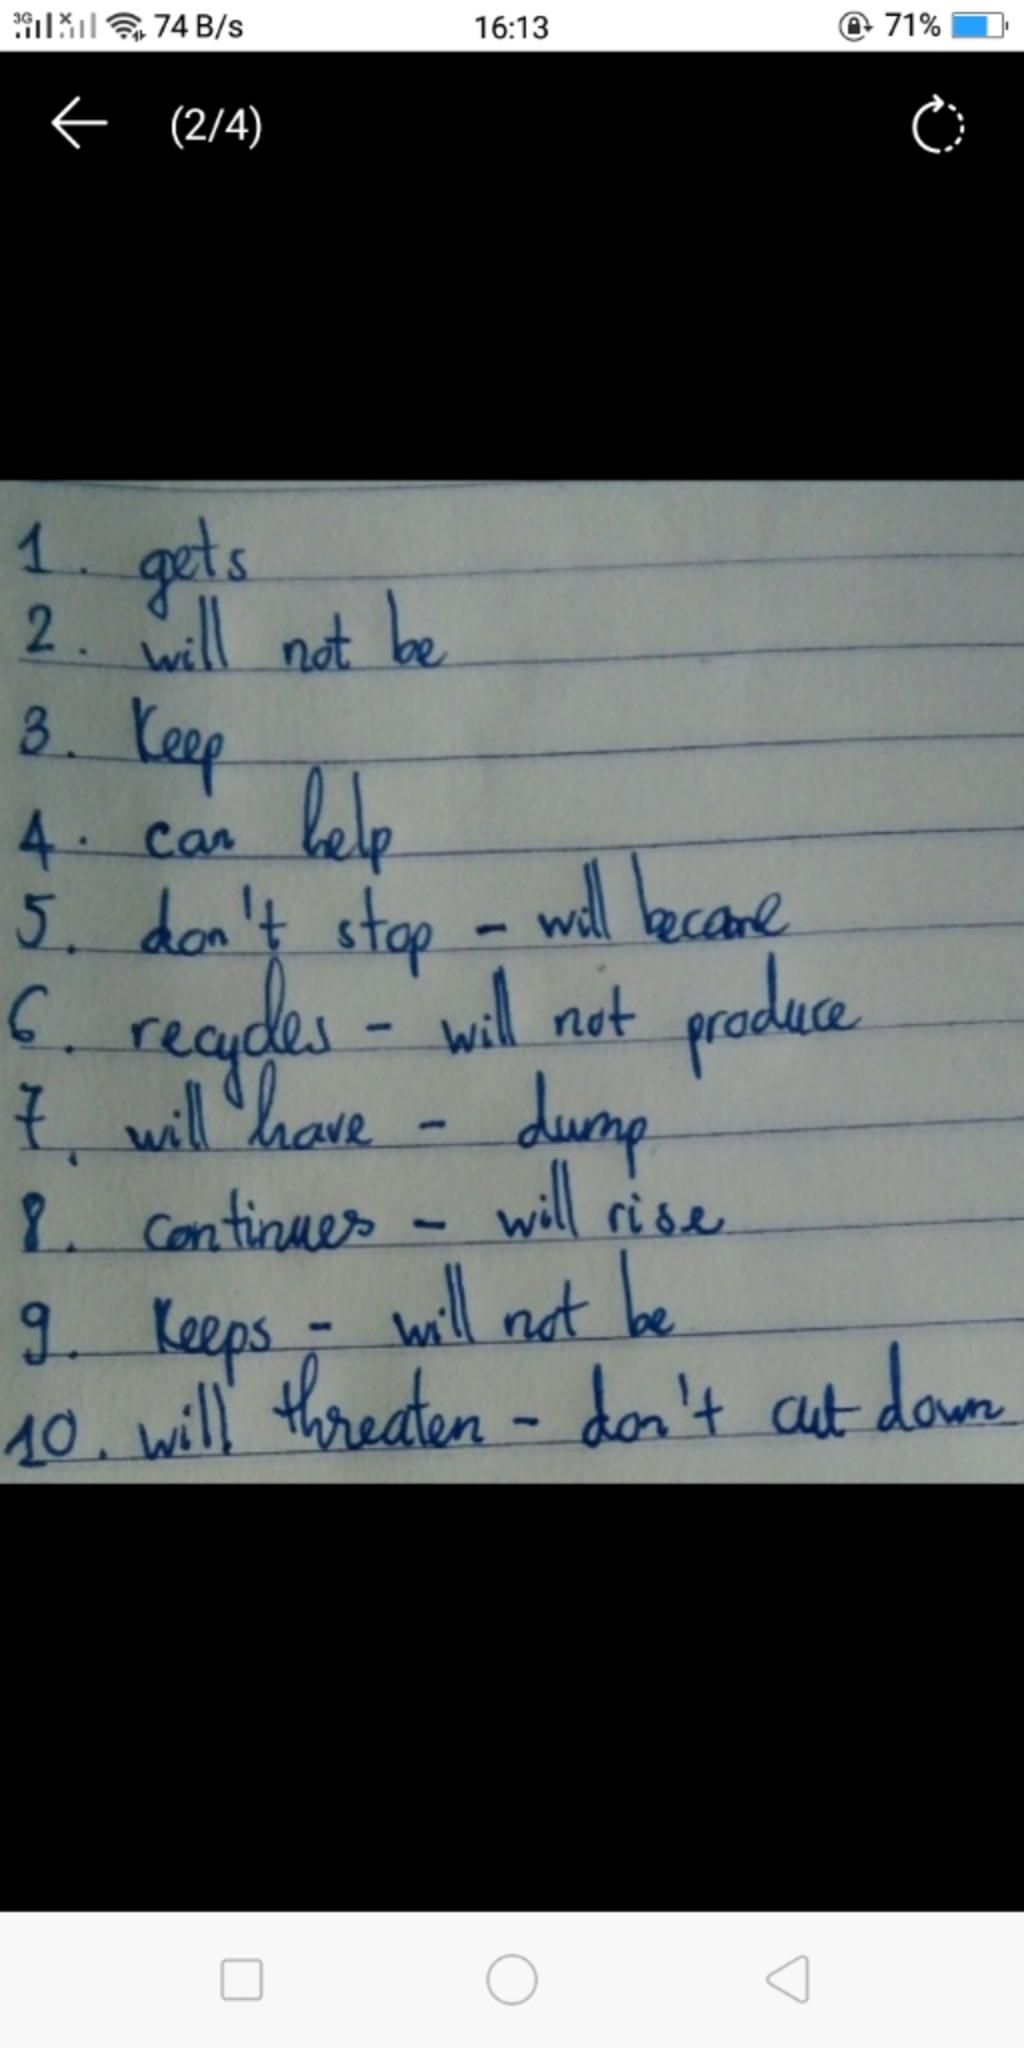 3G 74 B/s 16:13 71%
(2/4)
1. gets
2. will not be
3. Keep
4. can help
5. don't stop - will become
6. recycles - will not produce
7. will have - dump
8. continues - will rise
9. Keeps - will not be
10. will threaten - don't cut down